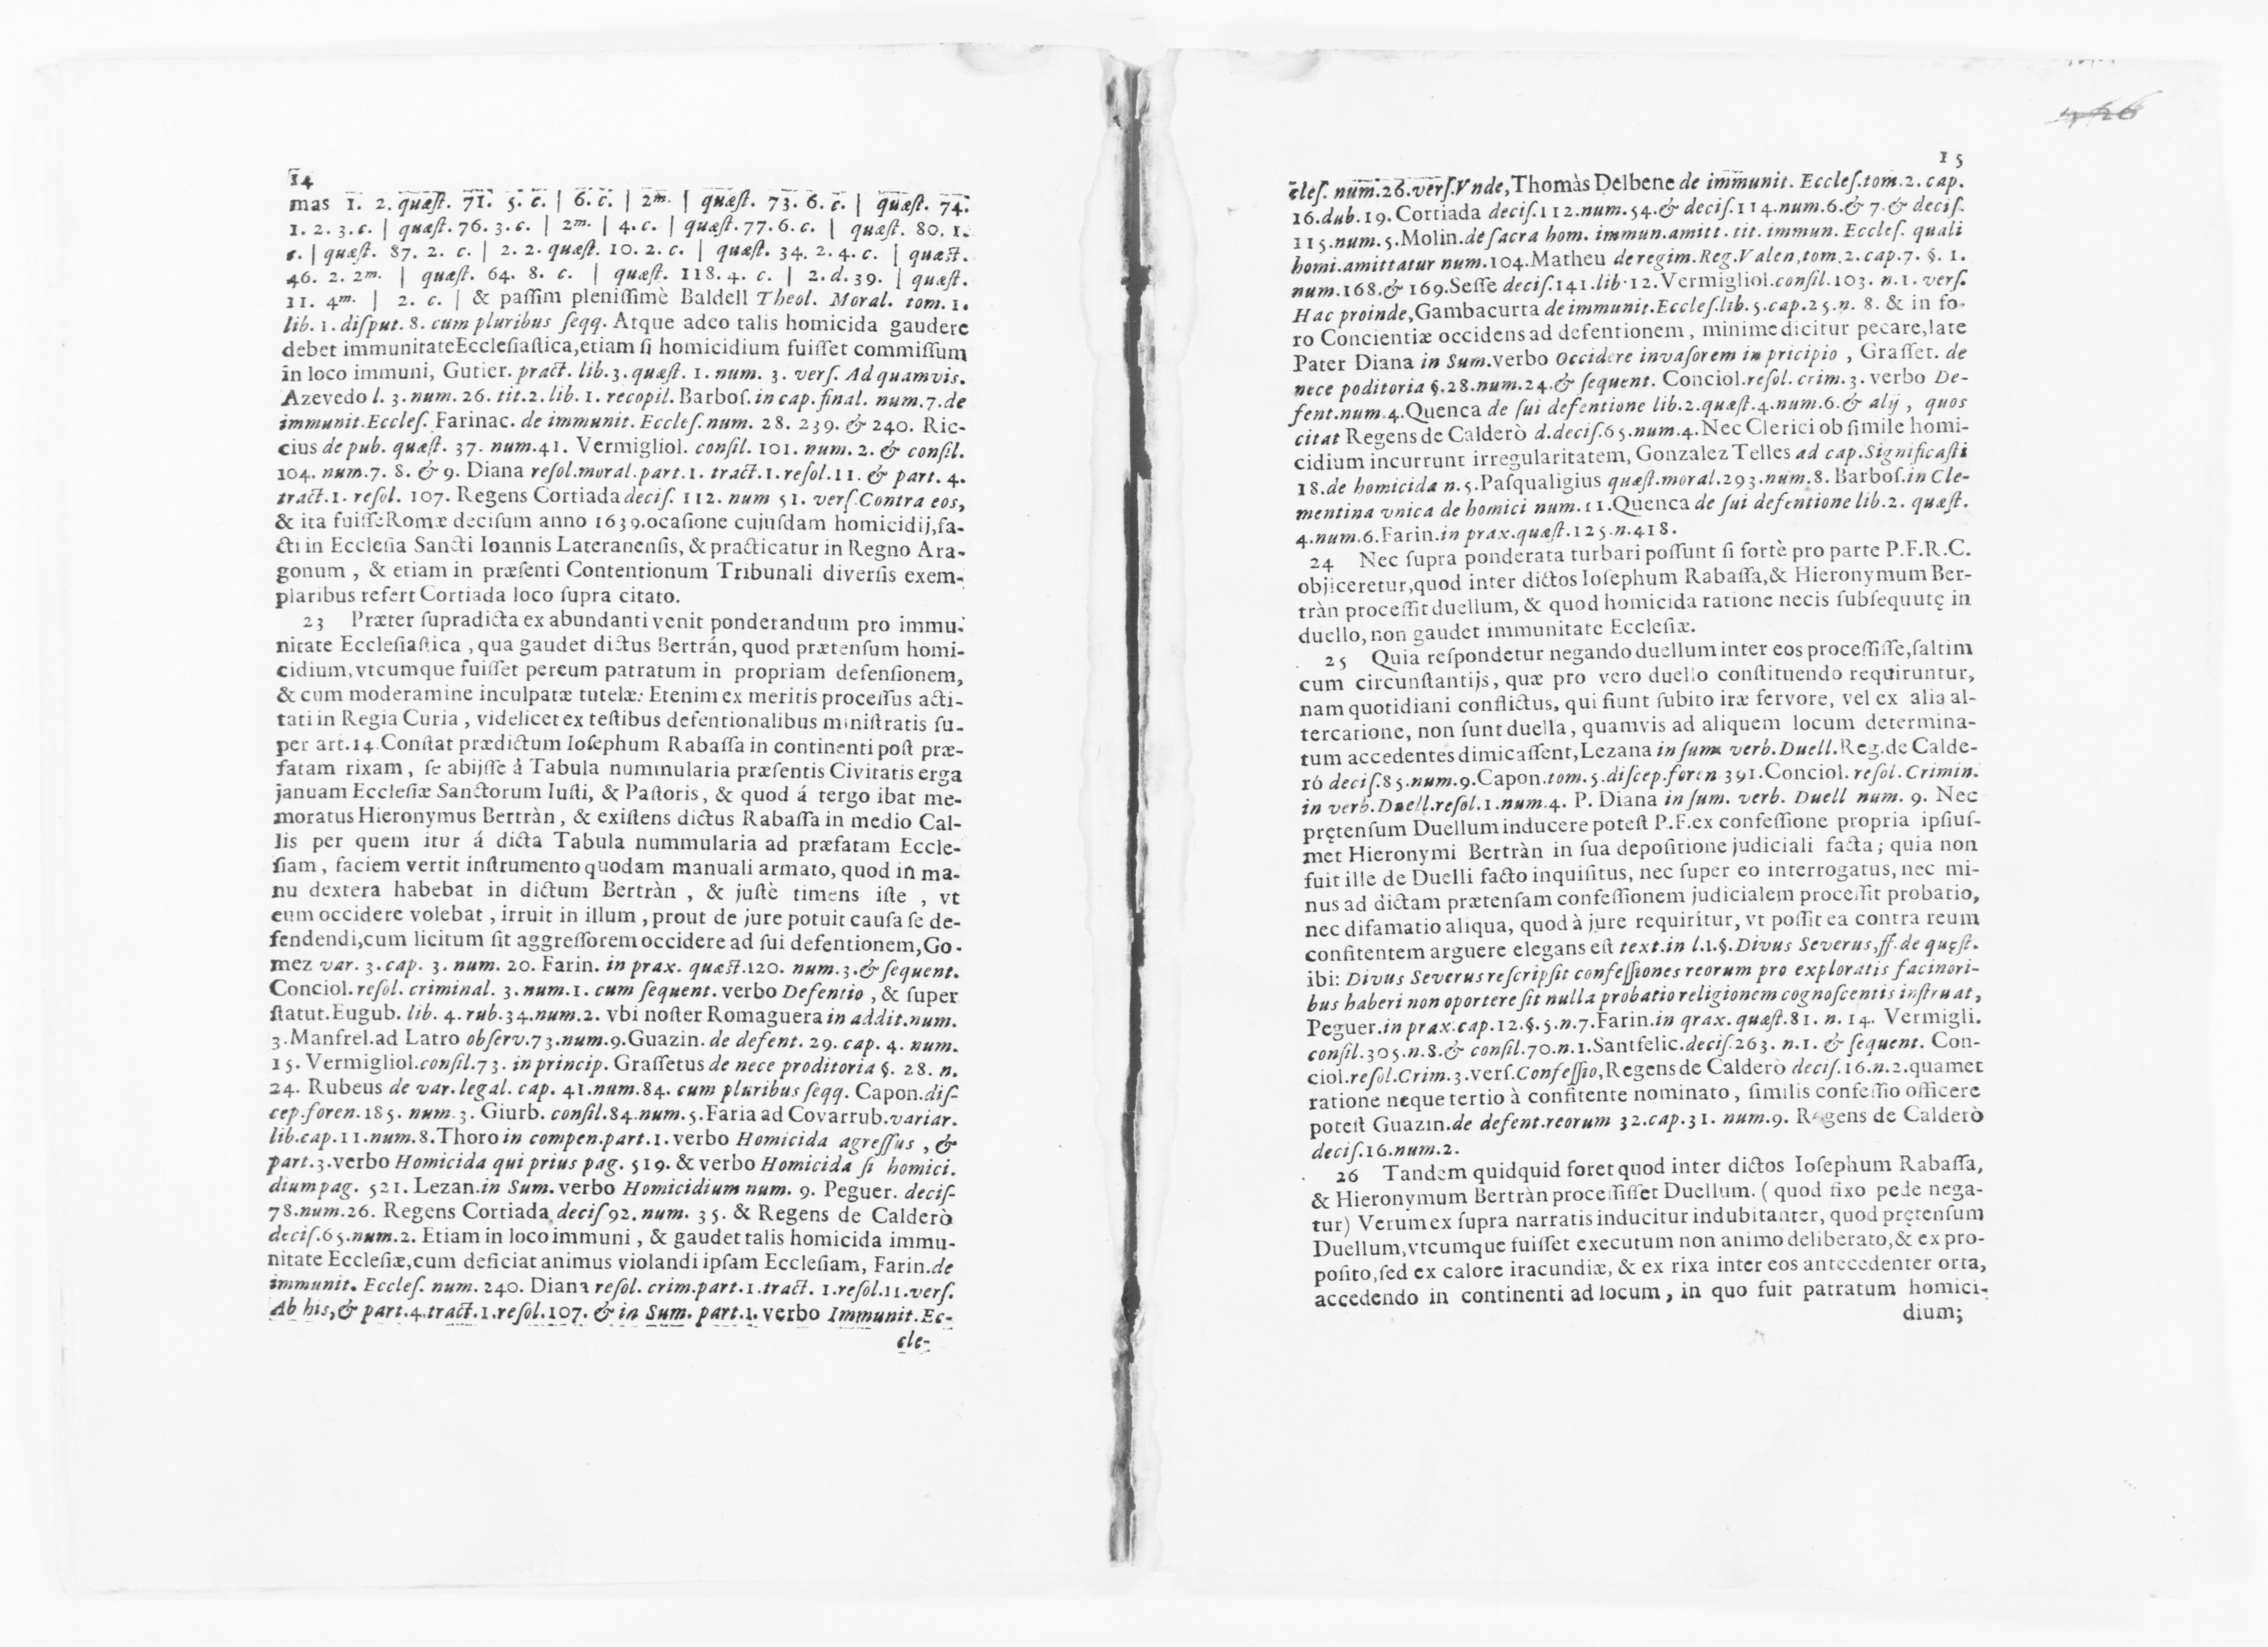 14
mas 1. 2. quæſt. 71. 5. c. | 6. c. | 2m. | quæſt. 73. 6. c. | quæſt. 74.
1. 2. 3. c. | quæſt. 76. 3. c. | 2m. | 4. c. | quæſt. 77. 6. c. | quæſt. 80. 1.
c. | quæſt. 87. 2. c. | 2. 2. quæſt. 10. 2. c. | quæſt. 34. 2. 4. c. | quæſt.
46. 2. 2m. | quæſt. 64. 8. c. | quæſt. 118. 4. c. | 2. d. 39. | quæſt.
11. 4m. | 2. c. | & paſſim pleniſſimè Baldell Theol. Moral. tom. 1.
lib. 1. diſput. 8. cum pluribus ſeqq. Atque adeo talis homicida gaudere
debet immunitate Eccleſiaſtica, etiam ſi homicidium fuiſſet commiſſum
in loco immuni, Gutier. pract. lib. 3. quæſt. 1. num. 3. verſ. Ad quamvis.
Azevedo l. 3. num. 26. tit. 2. lib. 1. recopil. Barboſ. in cap. final. num. 7. de
immunit. Eccleſ. Farinac. de immunit. Eccleſ. num. 28. 239. & 240. Ric-
cius de pub. quæſt. 37. num. 41. Vermigliol. conſil. 101. num. 2. & conſil.
104. num. 7. 8. & 9. Diana reſol. moral. part. 1. tract. 1. reſol. 11. & part. 4.
tract. 1. reſol. 107. Regens Cortiada deciſ. 112. num 51. verſ. Contra eos,
& ita fuiſſe Romæ deciſum anno 1639. ocaſione cujuſdam homicidij, fa-
cti in Eccleſia Sancti Ioannis Lateranenſis, & practicatur in Regno Ara-
gonum, & etiam in præſenti Contentionum Tribunali diverſis exem-
plaribus refert Cortiada loco ſupra citato.
23 Præter ſupradicta ex abundanti venit ponderandum pro immu-
nitate Eccleſiaſtica, qua gaudet dictus Bertrán, quod prætenſum homi-
cidium, vtcumque fuiſſet per eum patratum in propriam defenſionem,
& cum moderamine inculpatæ tutelæ: Etenim ex meritis proceſſus acti-
tati in Regia Curia, videlicet ex teſtibus defentionalibus miniſtratis ſu-
per art. 14. Conſtat prædictum Ioſephum Rabaſſa in continenti poſt præ-
fatam rixam, ſe abijſſe á Tabula nummularia præſentis Civitatis erga
januam Eccleſiæ Sanctorum Iuſti, & Paſtoris, & quod á tergo ibat me-
moratus Hieronymus Bertràn, & exiſtens dictus Rabaſſa in medio Cal-
lis per quem itur á dicta Tabula nummularia ad præfatam Eccle-
ſiam, faciem vertit inſtrumento quodam manuali armato, quod in ma-
nu dextera habebat in dictum Bertràn, & juſtè timens iſte, vt
eum occidere volebat, irruit in illum, prout de jure potuit cauſa ſe de-
fendendi, cum licitum ſit aggreſſorem occidere ad ſui defentionem, Go-
mez var. 3. cap. 3. num. 20. Farin. in prax. quæſt. 120. num. 3. & ſequent.
Conciol. reſol. criminal. 3. num. 1. cum ſequent. verbo Defentio, & ſuper
ſtatut. Eugub. lib. 4. rub. 34. num. 2. vbi noſter Romaguera in addit. num.
3. Manfrel. ad Latro obſerv. 73. num. 9. Guazin. de defent. 29. cap. 4. num.
15. Vermigliol. conſil. 73. in princip. Graſſetus de nece proditoria §. 28. n.
24. Rubeus de var. legal. cap. 41. num. 84. cum pluribus ſeqq. Capon. diſ-
cep. foren. 185. num. 3. Giurb. conſil. 84. num. 5. Faria ad Covarrub. variar.
lib. cap. 11. num. 8. Thoro in compen. part. 1. verbo Homicida agreſſus, &
part. 3. verbo Homicida qui prius pag. 519. & verbo Homicida ſi homici-
dium pag. 521. Lezan. in Sum. verbo Homicidium num. 9. Peguer. deciſ.
78. num. 26. Regens Cortiada deciſ 92. num. 35. & Regens de Calderò
deciſ. 65. num. 2. Etiam in loco immuni, & gaudet talis homicida immu-
nitate Eccleſiæ, cum deficiat animus violandi ipſam Eccleſiam, Farin. de
immunit. Eccleſ. num. 240. Diana reſol. crim. part. 1. tract. 1. reſol. 11. verſ.
Ab his, & part. 4. tract. 1. reſol. 107. & in Sum. part. 1. verbo Immunit. Ec-
cle-
15
cleſ. num. 26. verſ. Vnde, Thomàs Delbene de immunit. Eccleſ. tom. 2. cap.
16. dub. 19. Cortiada deciſ. 112. num. 54. & deciſ. 114. num. 6. & 7. & deciſ.
115. num. 5. Molin. de ſacra hom. immun. amitt. tit. immun. Eccleſ. quali
homi. amittatur num. 104. Matheu de regim. Reg. Valen, tom. 2. cap. 7. §. 1.
num. 168. & 169. Seſſe deciſ. 141. lib. 12. Vermigliol. conſil. 103. n. 1. verſ.
Hac proinde, Gambacurta de immunit. Eccleſ. lib. 5. cap. 25. n. 8. & in fo-
ro Concientiæ occidens ad defentionem, minime dicitur pecare, late
Pater Diana in Sum. verbo Occidere invaſorem in pricipio, Graſſet. de
nece poditoria §. 28. num. 24. & ſequent. Conciol. reſol. crim. 3. verbo De-
fent. num. 4. Quenca de ſui defentione lib. 2. quæſt. 4. num. 6. & alij, quos
citat Regens de Calderò d. deciſ. 65. num. 4. Nec Clerici ob ſimile homi-
cidium incurrunt irregularitatem, Gonzalez Telles ad cap. Significaſti
18. de homicida n. 5. Paſqualigius quæſt. moral. 293. num. 8. Barboſ. in Cle-
mentina vnica de homici num. 11. Quenca de ſui defentione lib. 2. quæſt.
4. num. 6. Farin. in prax. quæſt. 125. n. 418.
24 Nec ſupra ponderata turbari poſſunt ſi fortè pro parte P. F. R. C.
objiceretur, quod inter dictos Ioſephum Rabaſſa, & Hieronymum Ber-
tràn proceſſit duellum, & quod homicida ratione necis ſubſequutę in
duello, non gaudet immunitate Eccleſiæ.
25 Quia reſpondetur negando duellum inter eos proceſſiſſe, ſaltim
cum circunſtantijs, quæ pro vero duello conſtituendo requiruntur,
nam quotidiani conflictus, qui fiunt ſubito iræ fervore, vel ex alia al-
tercatione, non ſunt duella, quamvis ad aliquem locum determina-
tum accedentes dimicaſſent, Lezana in ſum. verb. Duell. Reg. de Calde-
ró deciſ. 85. num. 9. Capon. tom. 5. diſcep. foren 391. Conciol. reſol. Crimin.
in verb. Duell. reſol. 1. num. 4. P. Diana in ſum. verb. Duell num. 9. Nec
prętenſum Duellum inducere poteſt P. F. ex confeſſione propria ipſiuſ-
met Hieronymi Bertràn in ſua depoſitione judiciali facta; quia non
fuit ille de Duelli facto inquiſitus, nec ſuper eo interrogatus, nec mi-
nus ad dictam prætenſam confeſſionem judicialem proceſſit probatio,
nec difamatio aliqua, quod à jure requiritur, vt poſſit ea contra reum
confitentem arguere elegans eſt text. in l. 1. §. Divus Severus, ff. de quęſt.
ibi: Divus Severus reſcripſit confeſſiones reorum pro exploratis facinori-
bus haberi non oportere ſit nulla probatio religionem cognoſcentis inſtruat,
Peguer. in prax. cap. 12. §. 5. n. 7. Farin. in qrax. quæſt. 81. n. 14. Vermigli.
conſil. 305. n. 8. & conſil. 70. n. 1. Santfelic. deciſ. 263. n. 1. & ſequent. Con-
ciol. reſol. Crim. 3. verſ. Confeſſio, Regens de Calderò deciſ. 16. n. 2. quamet
ratione neque tertio à confitente nominato, ſimilis confeſſio officere
poteſt Guazin. de defent. reorum 32. cap. 31. num. 9. Regens de Calderò
deciſ. 16. num. 2.
26 Tandem quidquid foret quod inter dictos Ioſephum Rabaſſa,
& Hieronymum Bertràn proceſſiſſet Duellum. ( quod fixo pede nega-
tur) Verum ex ſupra narratis inducitur indubitanter, quod prętenſum
Duellum, vtcumque fuiſſet executum non animo deliberato, & ex pro-
poſito, ſed ex calore iracundiæ, & ex rixa inter eos antecedenter orta,
accedendo in continenti ad locum, in quo fuit patratum homici-
dium;